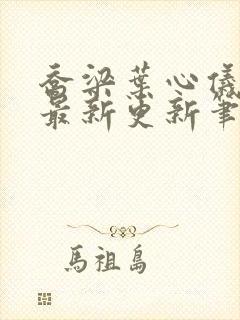 乔梁葉心儀
最新更新筆
馬祖島